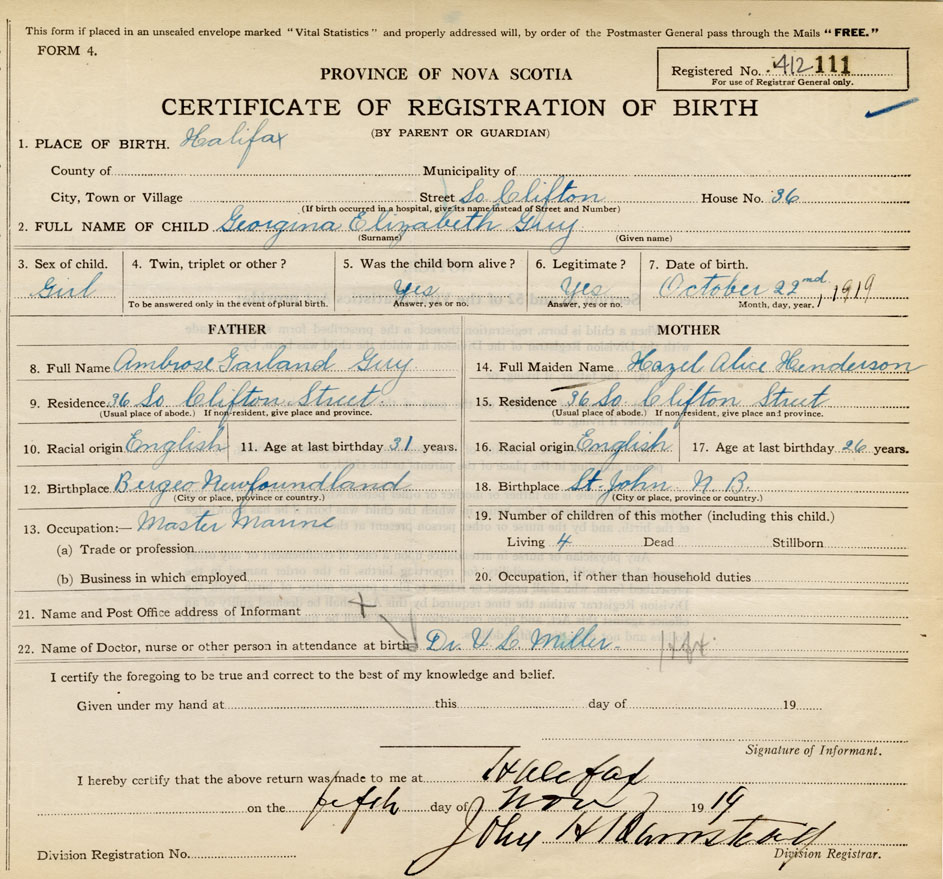 This form if placed in an unsealed envelope marked "Vital Statistics" and properly addressed will, by order of the Postmaster General pass through the Mails "FREE."
FORM 4.
Registered No. 412 111
For use of Registrar General only.
PROVINCE OF NOVA SCOTIA
CERTIFICATE OF REGISTRATION OF BIRTH
(BY PARENT OR GUARDIAN)
1. PLACE OF BIRTH. Halifax
County of Municipality of
City, Town or Village Street So Clifton House No. 36
(If birth occurred in a hospital, give its name instead of Street and Number)
2. FULL NAME OF CHILD Georgina Elizabeth Guy
(Surname) (Given name)
3. Sex of child. 4. Twin, triplet or other? 5. Was the child born alive? 6. Legitimate? 7. Date of birth.
Girl Yes Yes October 22nd, 1919
To be answered only in the event of plural birth. Answer, yes or no. Answer, yes or no. Month, day, year.
FATHER MOTHER
8. Full Name Ambrose Garland Guy 14. Full Maiden Name Hazel Alice Henderson
9. Residence 36 So Clifton Street. 15. Residence 36 So Clifton Street
(Usual place of abode.) If non-resident, give place and province. (Usual place of abode.) If non-resident, give place and province.
10. Racial origin English 11. Age at last birthday 31 years. 16. Racial origin English 17. Age at last birthday 26 years.
12. Birthplace Burgeo Newfoundland 18. Birthplace St. John N. B.
(City or place, province or country.) (City or place, province or country.)
13. Occupation:— Master Marine 19. Number of children of this mother (including this child.)
(a) Trade or profession Living 4 Dead Stillborn
(b) Business in which employed 20. Occupation, if other than household duties
21. Name and Post Office address of Informant
22. Name of Doctor, nurse or other person in attendance at birth Dr. V L Miller. Hfx
I certify the foregoing to be true and correct to the best of my knowledge and belief.
Given under my hand at this day of 19
Signature of Informant.
I hereby certify that the above return was made to me at Halifax
on the fifth day of Nov 1919
John H Barnstead
Division Registration No. Division Registrar.